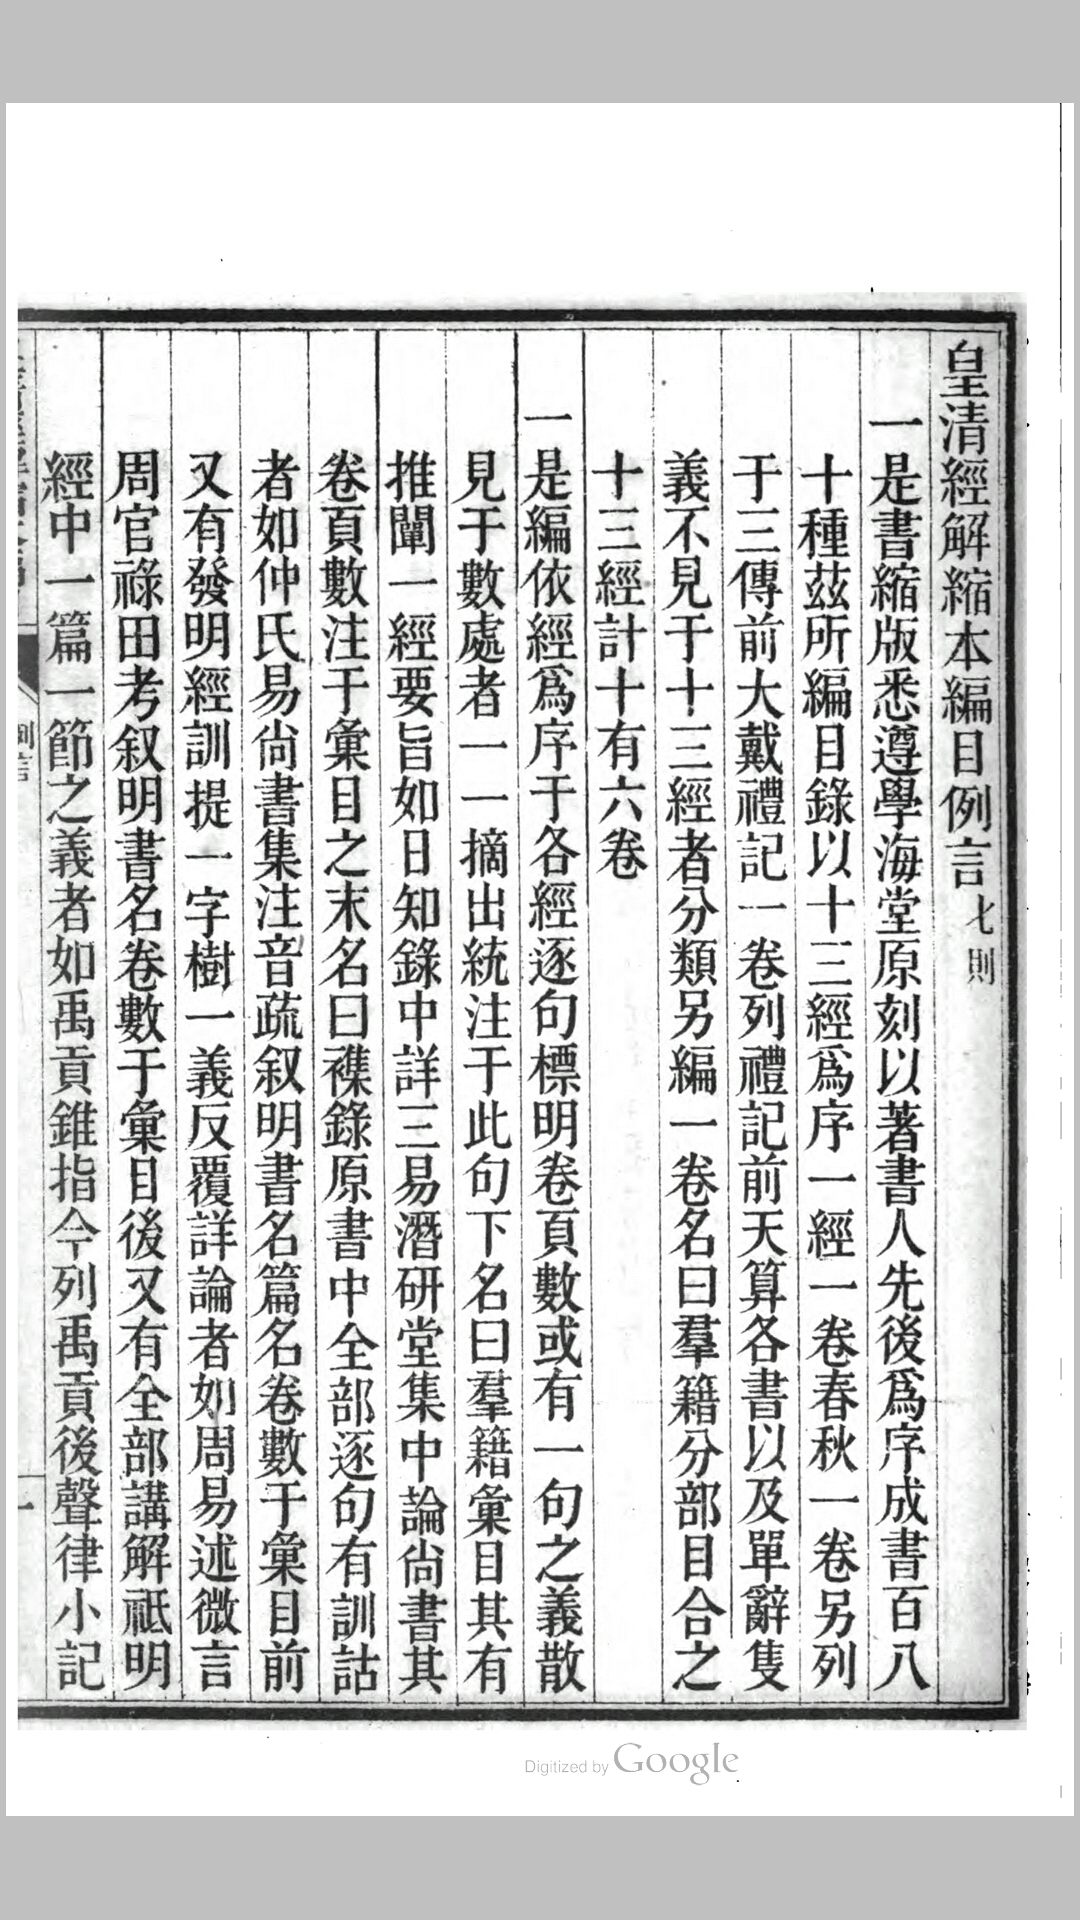 皇清經解縮本編目例言七則
一是書縮版悉遵學海堂原刻以著書人先後爲序成書百八
十種茲所編目錄以十三經爲序一經一卷春秋一卷另列
于三傳前大戴禮記一卷列禮記前天算各書以及單辭隻
義不見于十三經者分類另編一卷名曰羣籍分部目合之
十三經計十有六卷
一是編依經爲序于各經逐句標明卷頁數或有一句之義散
見于數處者一一摘出統注于此句下名曰羣籍彙目其有
推闡一經要旨如日知錄中詳三易潛研堂集中論尚書其
卷頁數注于彙目之末名曰襍錄原書中全部逐句有訓詁
者如仲氏易尚書集注音疏叙明書名篇名卷數于彙目前
又有發明經訓提一字樹一義反覆詳論者如周易述微言
周官祿田考叙明書名卷數于彙目後又有全部講解祗明
經中一篇一節之義者如禹貢錐指今列禹貢後聲律小記
例言
一
Digitized by Google